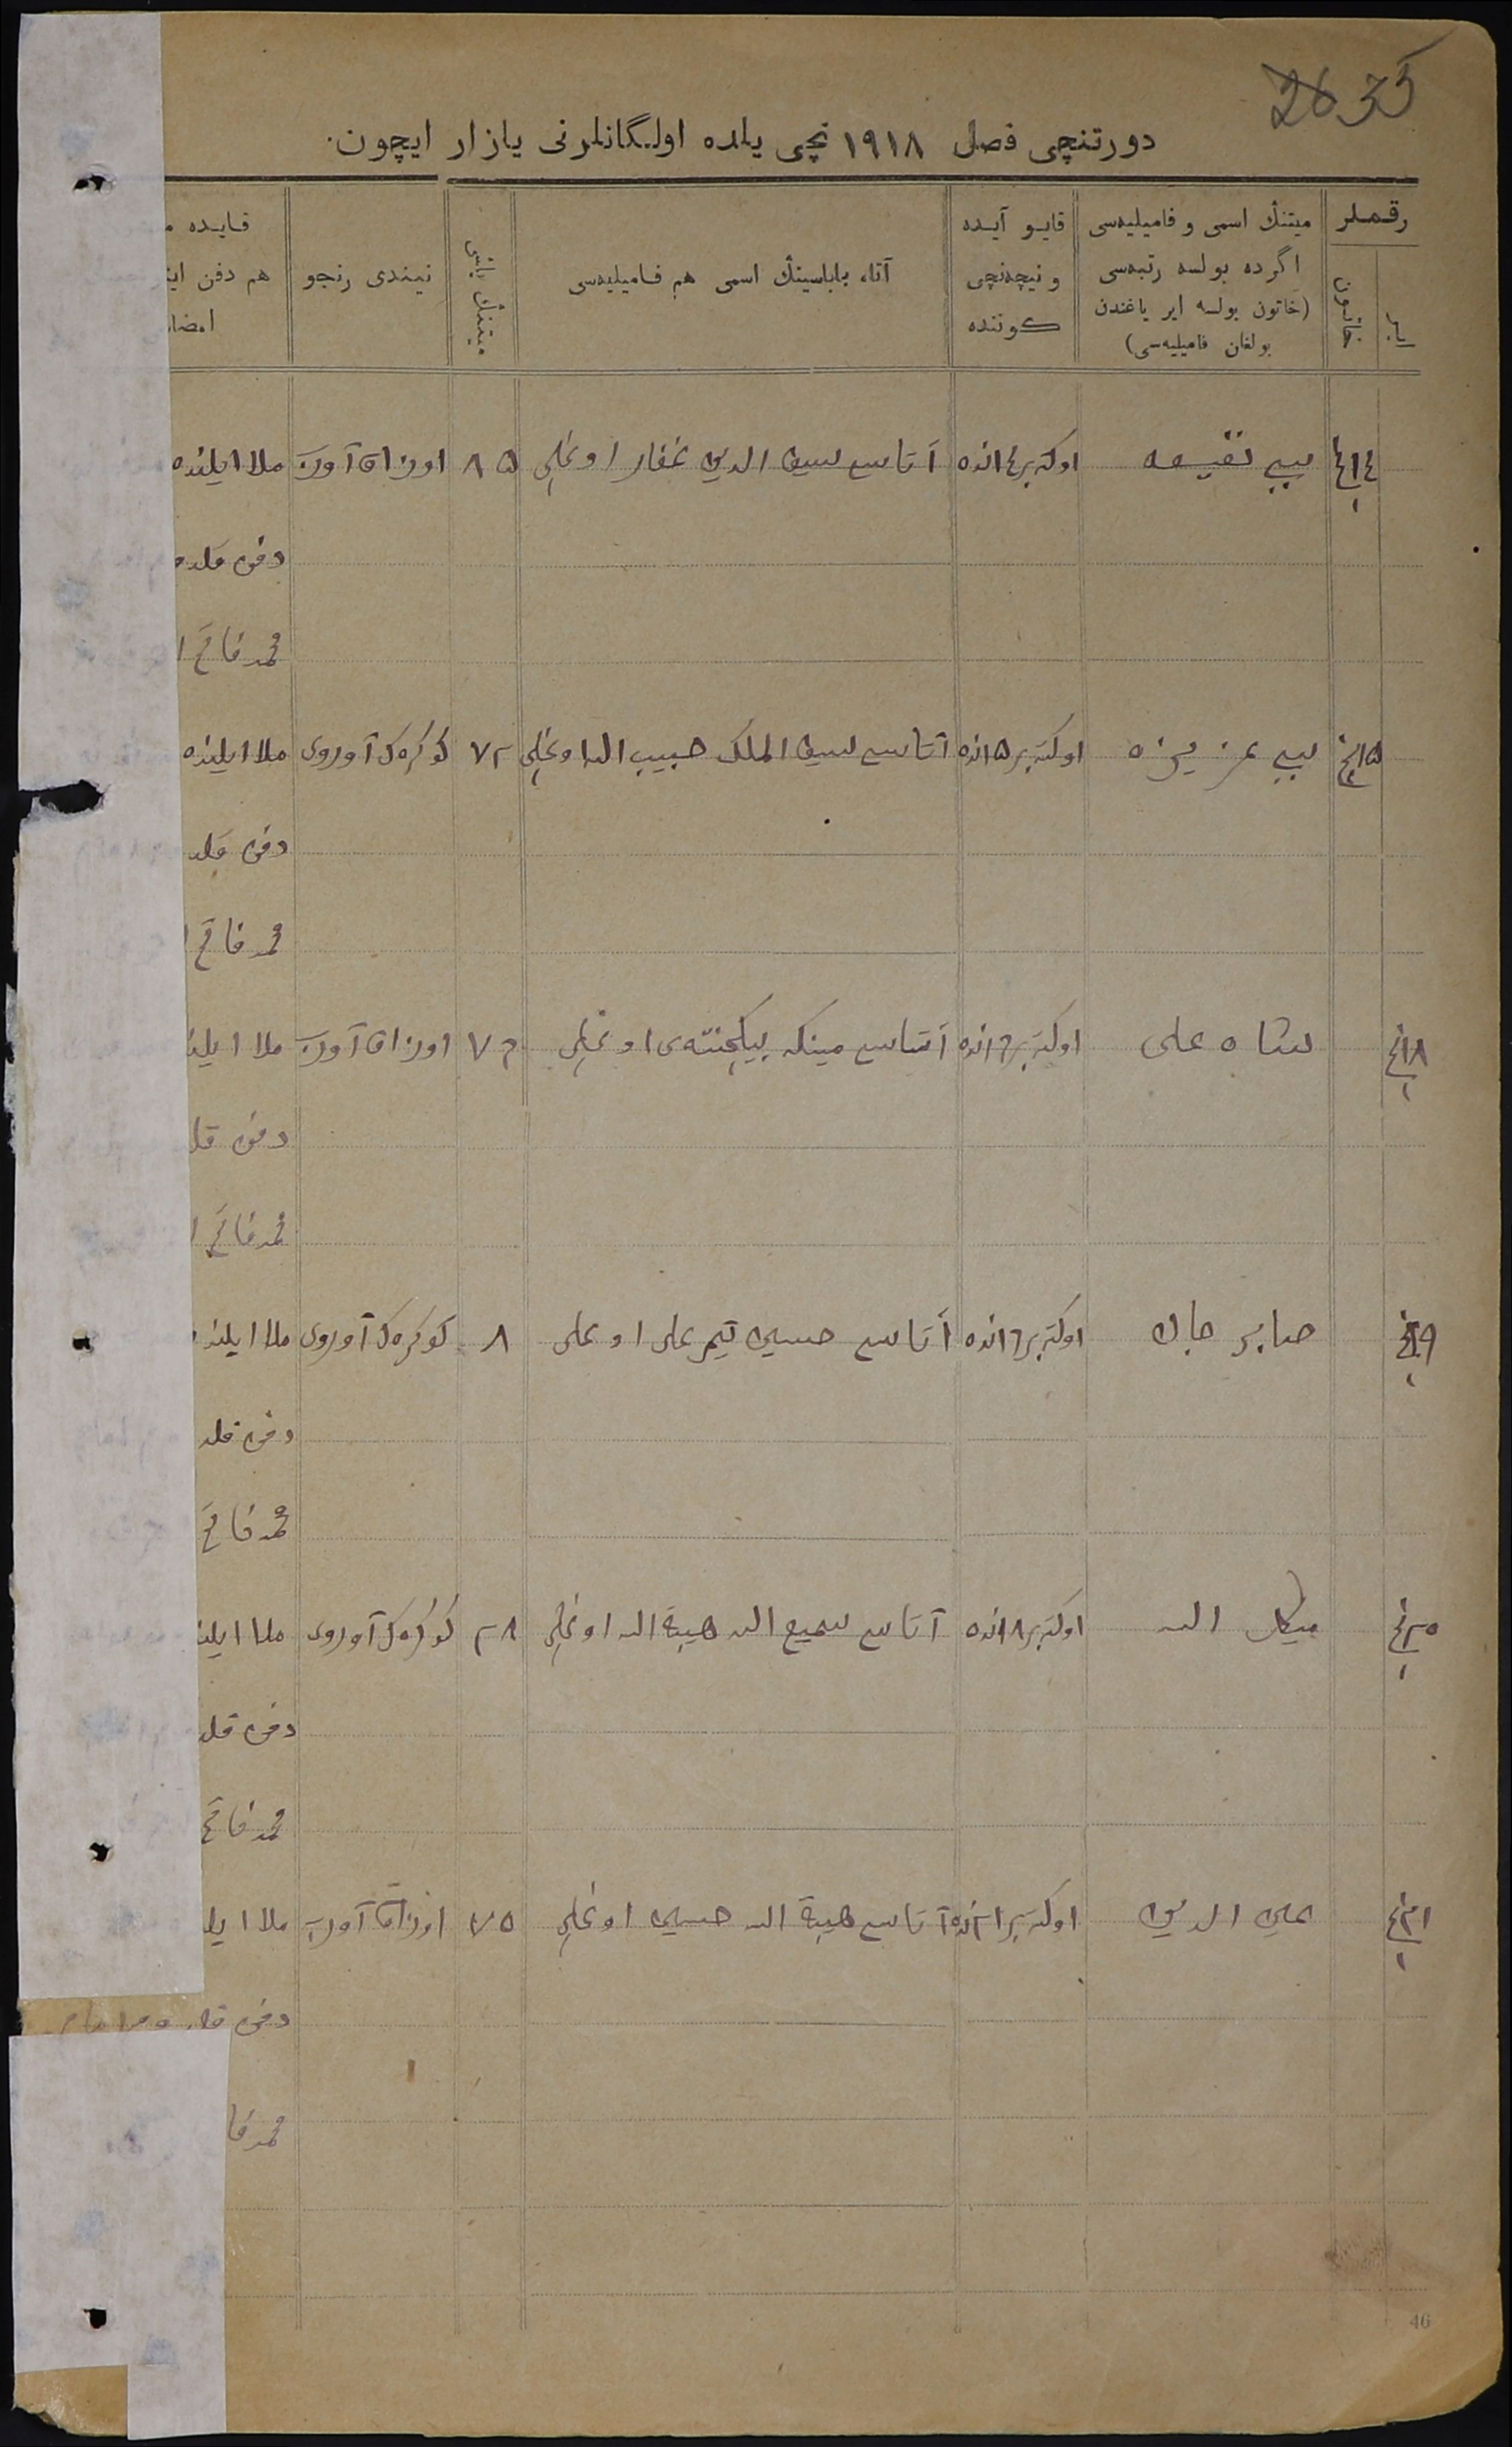 26 33
دورتنچی فصل ١٩١٨ نچی یلده اولگانلرنی یازار ایچون.
رقملر
ایر
خاتون
میتنڭ اسمی و فامیلیه‌سی
اگرده بولسه رتبه‌سی
(خاتون بولسه ایر یاغندن
بولغان فامیلیه‌سی)
قایو آیده
و نیچه‌نچی
کوننده
آتا، باباسینڭ اسمی هم فامیلیه‌سی
میتنڭ یاشی
نیندی رنجو
قایده
هم دفن
امضا
١٤نچی بیبی نفیسه اوکتبر ١٤نده آتاسی سیف الدین غفار اوغلی ٨٥ اوزاق آورب ملا ایلنده
دفن قلد
محمد فاتح
١٥نچی بیبی عزیزه اوکتبر ١٥نده آتاسی سیف الملک حبیب الله اوغلی ٧٢ کوکره‌ک آوروی ملا ایلنده
دفن قلد
محمد فاتح
١٨نچی شاه علی اوکتبر ١٦نده آتاسی مینکه اوغلی اوزاق آورب ملا ایلن
دفن قل
محمد فاتح
١٩نچی صابر جان اوکتبر ١٦نده آتاسی حسین تیمر علی اوغلی ٨ کوکره‌ک آوروی ملا ایلند
دفن قلد
محمد فاتح
٢٠نچی میکال الله اوکتبر ١٨نده آتاسی سمیع الله هبة الله اوغلی ٢٨ کوکره‌ک آوروی ملا ایلن
دفن قلد
محمد فاتح
٢١نچی محی الدین اوکتبر ٢١نده آتاسی هبة الله حسین اوغلی ٧٥ اوزاق آورب ملا ایل
دفن قل
محمد فا
46